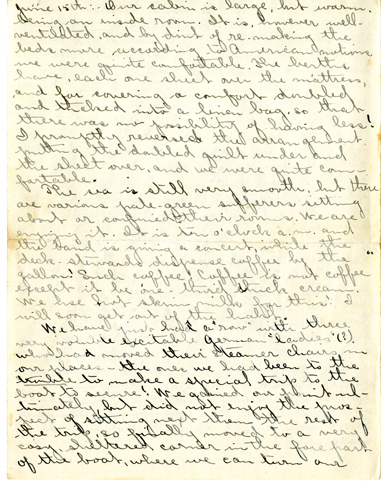 June 15th:- Our cabin is large, but warm,
being an inside room. It is, however well-
ventilated, and by dint of re-making the
beds more according to American notions,
we were quite comfortable. The berths
have, each one sheet over the mattress,
and for covering a comfort doubled
and thrust into a linen bag, so that
there was no possibility of having less!
I promptly reversed the arrangement
putting the doubled quilt under and
the sheet over, and we were quite com-
fortable.
The sea is still very smooth, but there
are various pale green sufferers sitting
about or confined to their rooms. We are
enjoying it. It is ten o'clock a.m. and
the band is giving a concert, while the
deck-stewards dispense coffee by the
gallon! Such coffee! Coffee is not coffee
except it be one-third thick cream.
We use hot skim milk for this! I
will soon get out of the habit.
We have just had a "row" with three
very voluble excitable German "ladies"(?)
who had moved their steamer chairs on
our places - the ones we had been to the
trouble to make a special trip to the
boat to secure! We gained our point ul-
timately, but did not enjoy the pros-
pect of sitting next them the rest of
the trip, so finally moved to a very
cosy, sheltered corner in the fore part
of the boat, where we can turn our